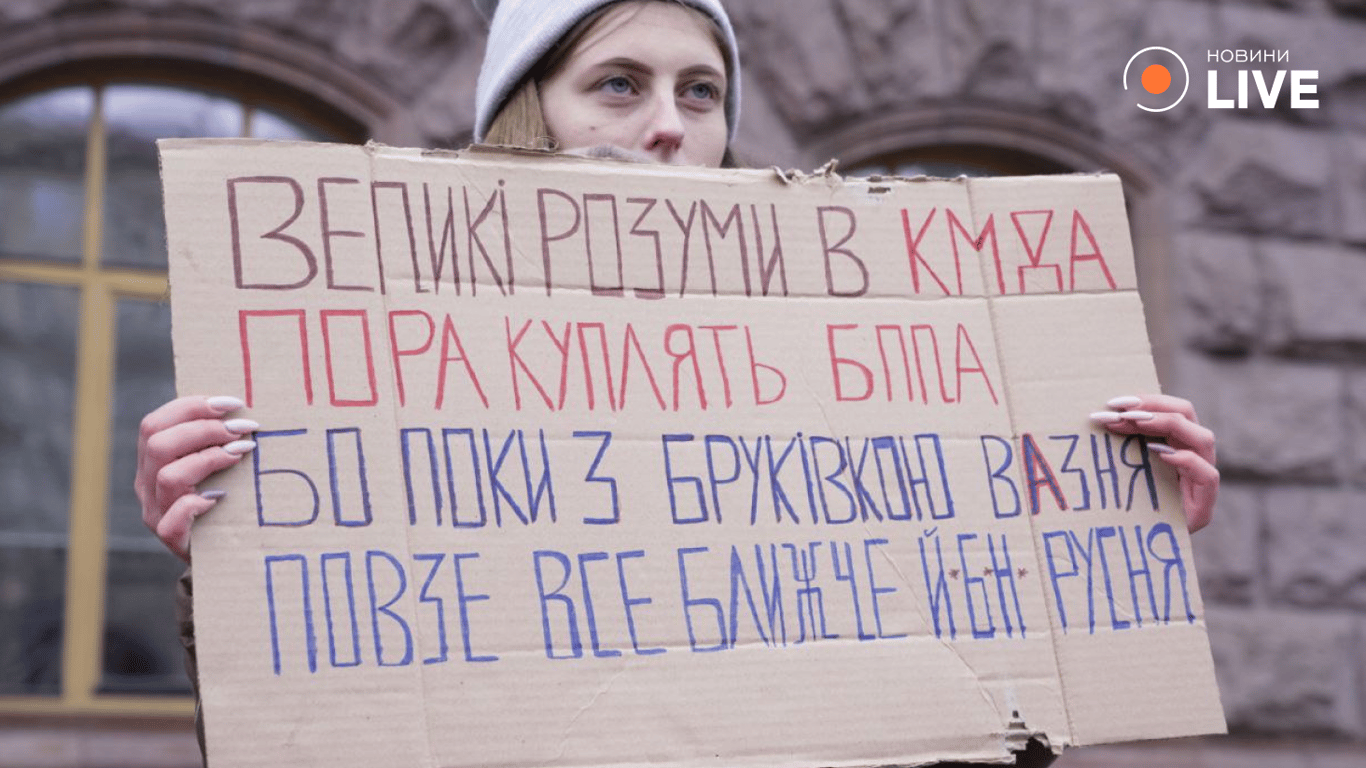 НОВИНИ
LIVE
ВЕЛИКІ РОЗУМИ В КМДА
ПОРА КУПЛЯТЬ БППА
БО ПОКИ З БРУКІВКОЮ ВАЗНЯ
ПОВЗЕ ВСЕ БЛИЖЧЕ Й*БН* РУСНЯ